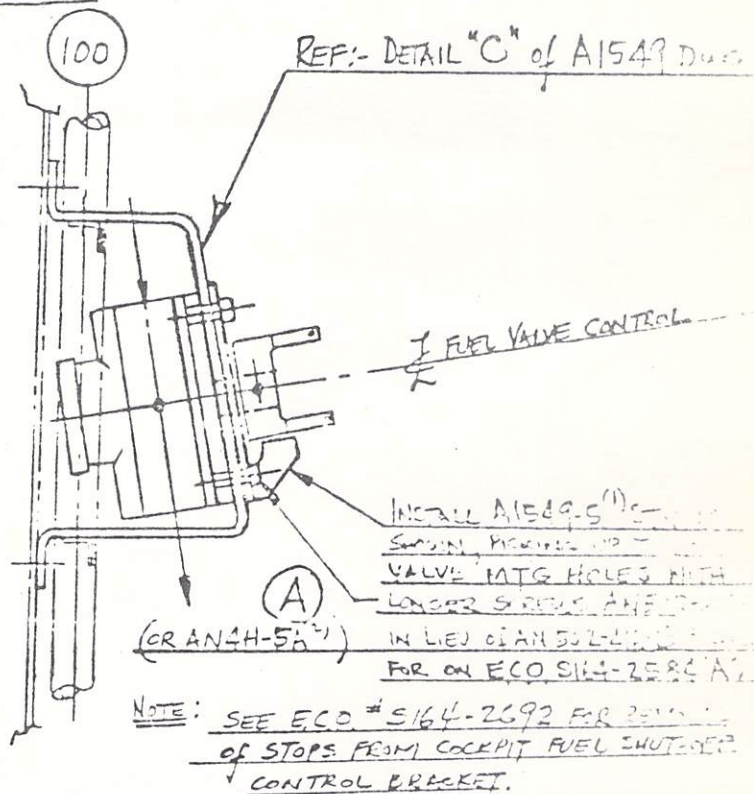 100
REF:- DETAIL "C" of A1549
℄ FUEL VALVE CONTROL
INSTALL A1549-5 (1)
VALVE MTG HOLES WITH
LONGER SCREWS
A
(OR AN4H-5A
IN LIEU OF AN 502-
FOR ON ECO S164-2584
NOTE: SEE E.C.O. # S164-2692 FOR
of STOPS FROM COCKPIT FUEL SHUT-OFF
CONTROL BRACKET.